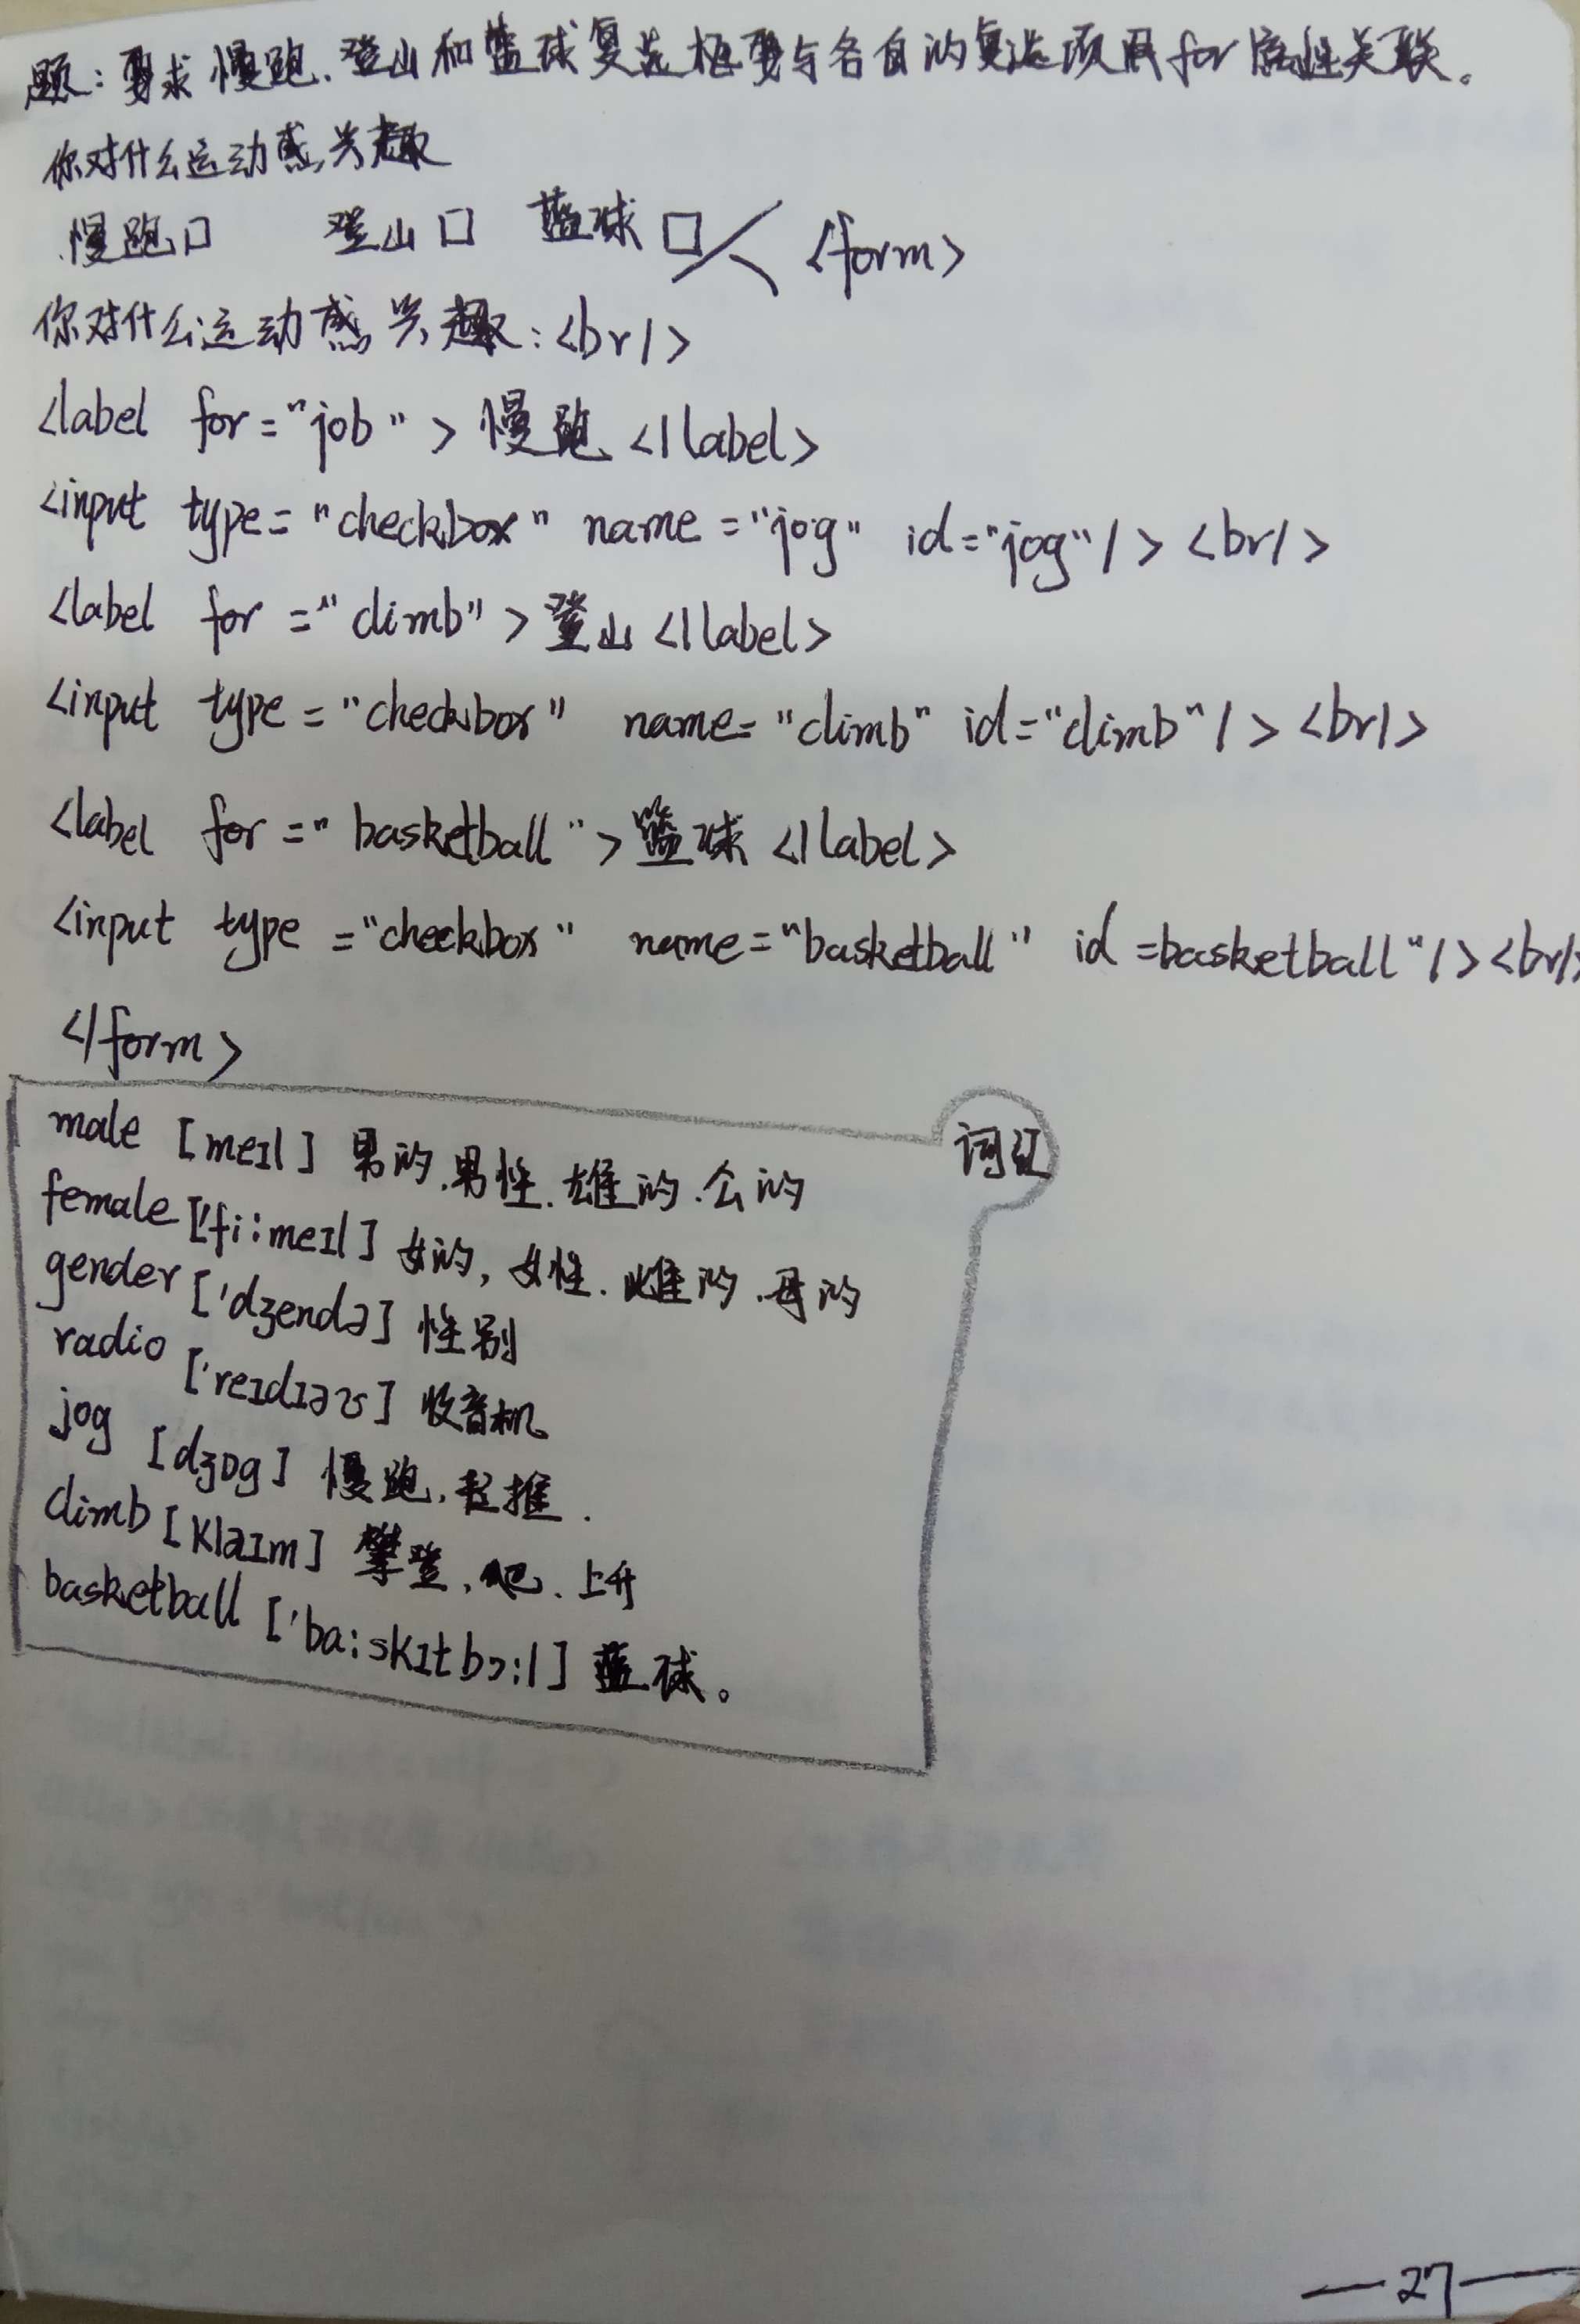 题:要求慢跑、登山和篮球复选框要与各自的复选项用for属性关联。
你对什么运动感兴趣
慢跑口 登山口 蓝球口
<form>
你对什么运动感兴趣:<br/>
<label for="job">慢跑</label>
<input type="checkbox" name="jog" id="jog"/><br/>
<label for="climb">登山</label>
<input type="checkbox" name="climb" id="climb"/><br/>
<label for="basketball">篮球</label>
<input type="checkbox" name="basketball" id=basketball"/><br/>
</form>
词汇
male [meɪl] 男的、男性、雄的、公的
female ['fi:meɪl] 女的,女性、雌的、母的
gender ['dʒendə] 性别
radio ['reɪdɪəʊ] 收音机
jog [dʒɒg] 慢跑,轻推.
climb [klaɪm] 攀登,爬、上升
basketball ['ba:skɪtbɔ:l] 蓝球。
—27—